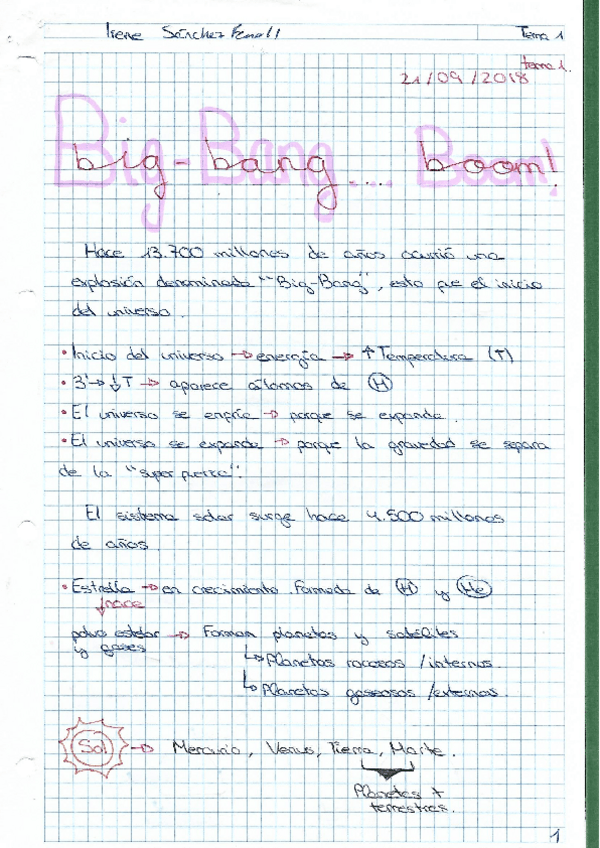 Irene Sánchez Tema 1
tema 1.
21/09/2018
Big-Bang... Boom!
big-bang.... boom!
Hace 13.700 millones de años ocurrió una
explosión denominada "Big-Bang", esto fue el inicio
del universo.
• Inicio del universo → energía → ↑ Temperatura (T)
• 3' → ↓T → aparece átomos de H
• El universo se enfría → porque se expande.
• El universo se expande → porque la gravedad se separa
de la "super fuerza".
El sistema solar surge hace 4.500 millones
de años.
• Estrella → en crecimiento. Formada de H y He
↓ nace
polvo estelar → Forman planetas y satélites
y gases
↳ Planetas rocosos / internos.
↳ Planetas gaseosos / externos.
Sol → Mercurio, Venus, Tierra, Marte.
Planetas +
terrestres.
1